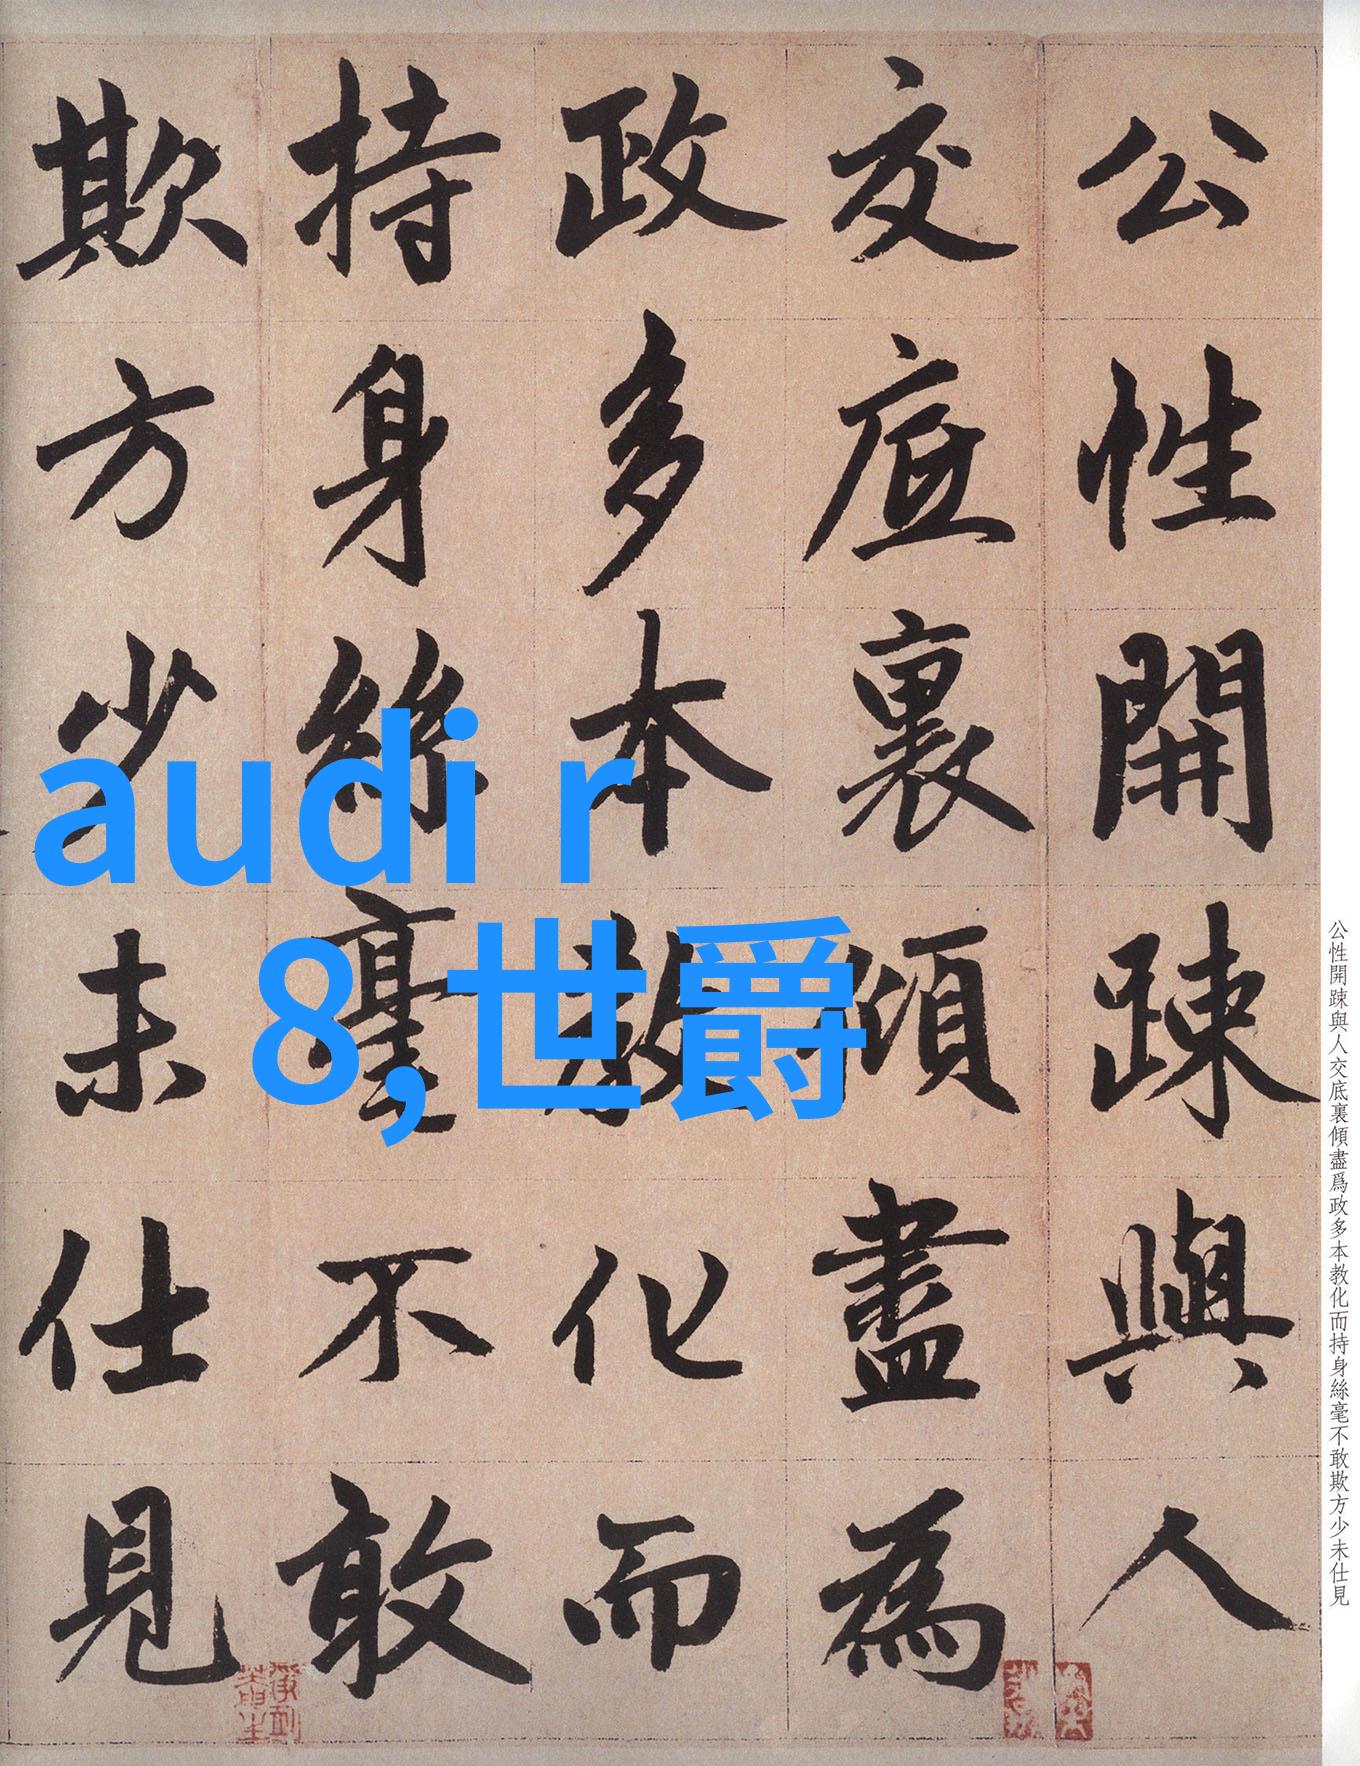 公性開踈與人
交底裏傾盡為
政多本教化而
持身絲毫不敢
欺方少未仕見
audi r
8,世爵
公性開踈與人交底裏傾盡爲政多本教化而持身絲毫不敢欺方少未仕見